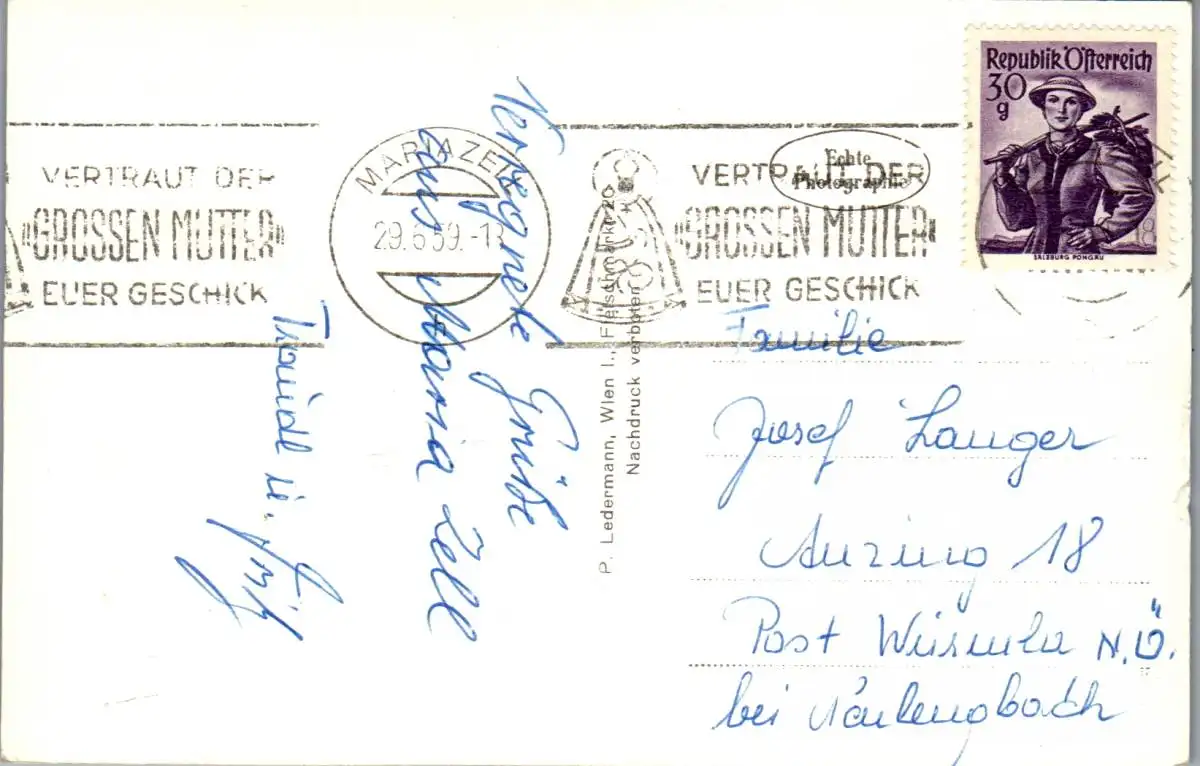 VERTRAUT DER
GROSSEN MUTTER
EUER GESCHICK
MARIAZELL
29.6.59.-18
VERTRAUT DER
GROSSEN MUTTER
EUER GESCHICK
Echte
Photographie
Republik Österreich
30
g
SALZBURG PONGAU
Grüße
aus Maria Zell
Traudl u.
P. Ledermann, Wien I., Fleischmarkt 20
Nachdruck verboten
Familie
Josef Langer
Anzing 18
Post Würmla N.Ö.
bei Neulengbach